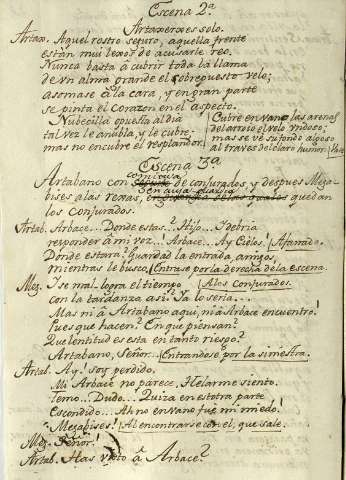 Escena 2ª
Artaxerxes solo.
Artax. Aquel rostro seguro, aquella frente
están mui lexos de acusarte reo.
Nunca basta â cubrir toda la llama
de un alma grande el sobrepuesto velo;
asomase â la cara, y en gran parte
se pinta el corazon en el aspecto.
Nubecilla opuesta al dia
tal vez le anubla, y le cubre
mas no encubre el resplandor.
Cubre en vano las arenas
del arroio el velo undoso;
mas se vé su fondo algoso
al traves del claro humor. Vase
Escena 3ª
Artabano con comitiva de conjurados, y despues Mega-
bises a las rexas, en cuia guardia quedan
los Conjurados.
Artab. Arbace... Donde estas? Hijo... Debria
responder â mi voz... Arbace... Ay Cielos! Afanado.
Donde estará? Guardad la entrada, amigos,
mientras le busco. Entrase por la derecha de la escena.
Meg. I se mal logra el tiempo A los conjurados.
con la tardanza asi? Ya lo sería...
Mas ni â Artabano aqui, ni â Arbace encuentro!
Pues que hacen? En que piensan?
Que lentitud es esta en tanto riesgo?
Artabano, Señor... Entrandose por la siniestra.
Artab. Ay! soy perdido.
Mi Arbace no parece. Helarme siento.
temo... Dudo... Quiza en estotra parte
Escondido... Ah no en vano fue mi miedo!
Megabises! Al encontrarse con el, que sale.
Meg. Señor!
Artab. Has visto â Arbace?